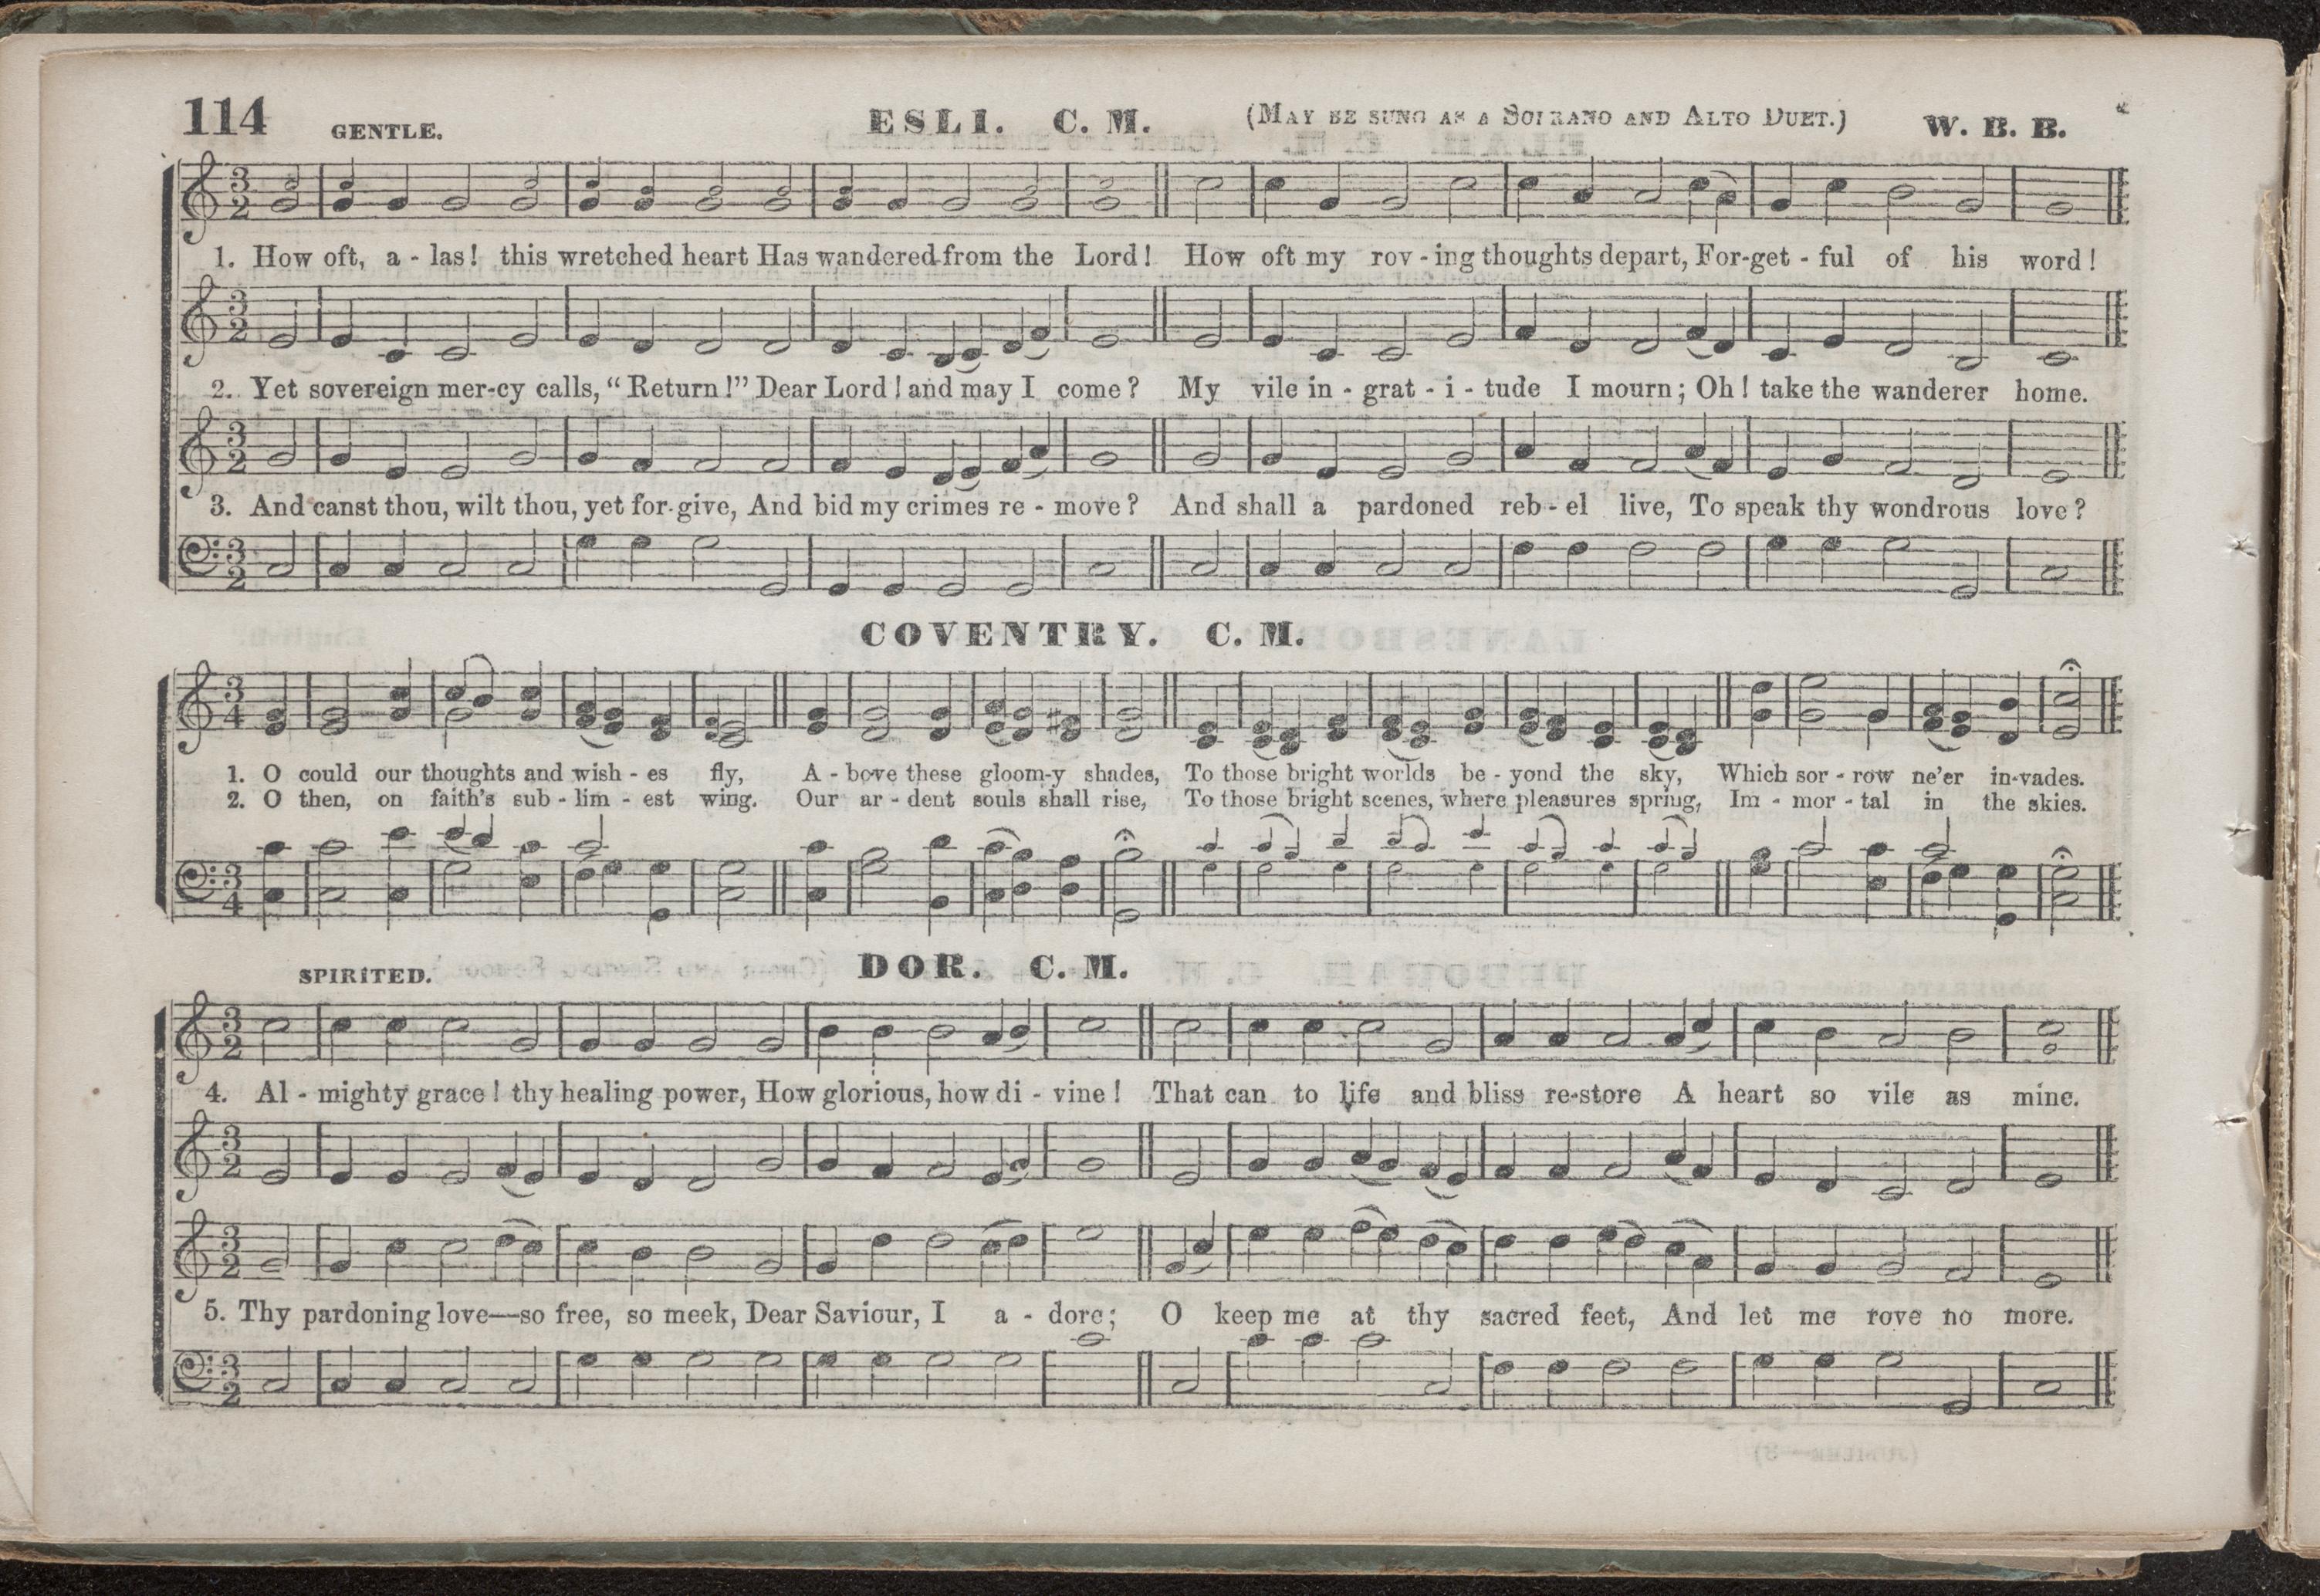 114 GENTLE. ESLI. C. M. (MAY BE SUNG AS A SOPRANO AND ALTO DUET.) W. B. B.
1. How oft, a - las! this wretched heart Has wandered from the Lord! How oft my rov - ing thoughts depart, For-get - ful of his word!
2. Yet sovereign mer-cy calls, “Return!” Dear Lord! and may I come? My vile in - grat - i - tude I mourn; Oh! take the wanderer home.
3. And canst thou, wilt thou, yet for-give, And bid my crimes re - move? And shall a pardoned reb - el live, To speak thy wondrous love?
COVENTRY. C. M.
1. O could our thoughts and wish - es fly, A - bove these gloom-y shades, To those bright worlds be - yond the sky, Which sor - row ne'er in-vades.
2. O then, on faith's sub - lim - est wing. Our ar - dent souls shall rise, To those bright scenes, where pleasures spring, Im - mor - tal in the skies.
SPIRITED. DOR. C. M.
4. Al - mighty grace! thy healing power, How glorious, how di - vine! That can to life and bliss re-store A heart so vile as mine.
5. Thy pardoning love—so free, so meek, Dear Saviour, I a - dore; O keep me at thy sacred feet, And let me rove no more.